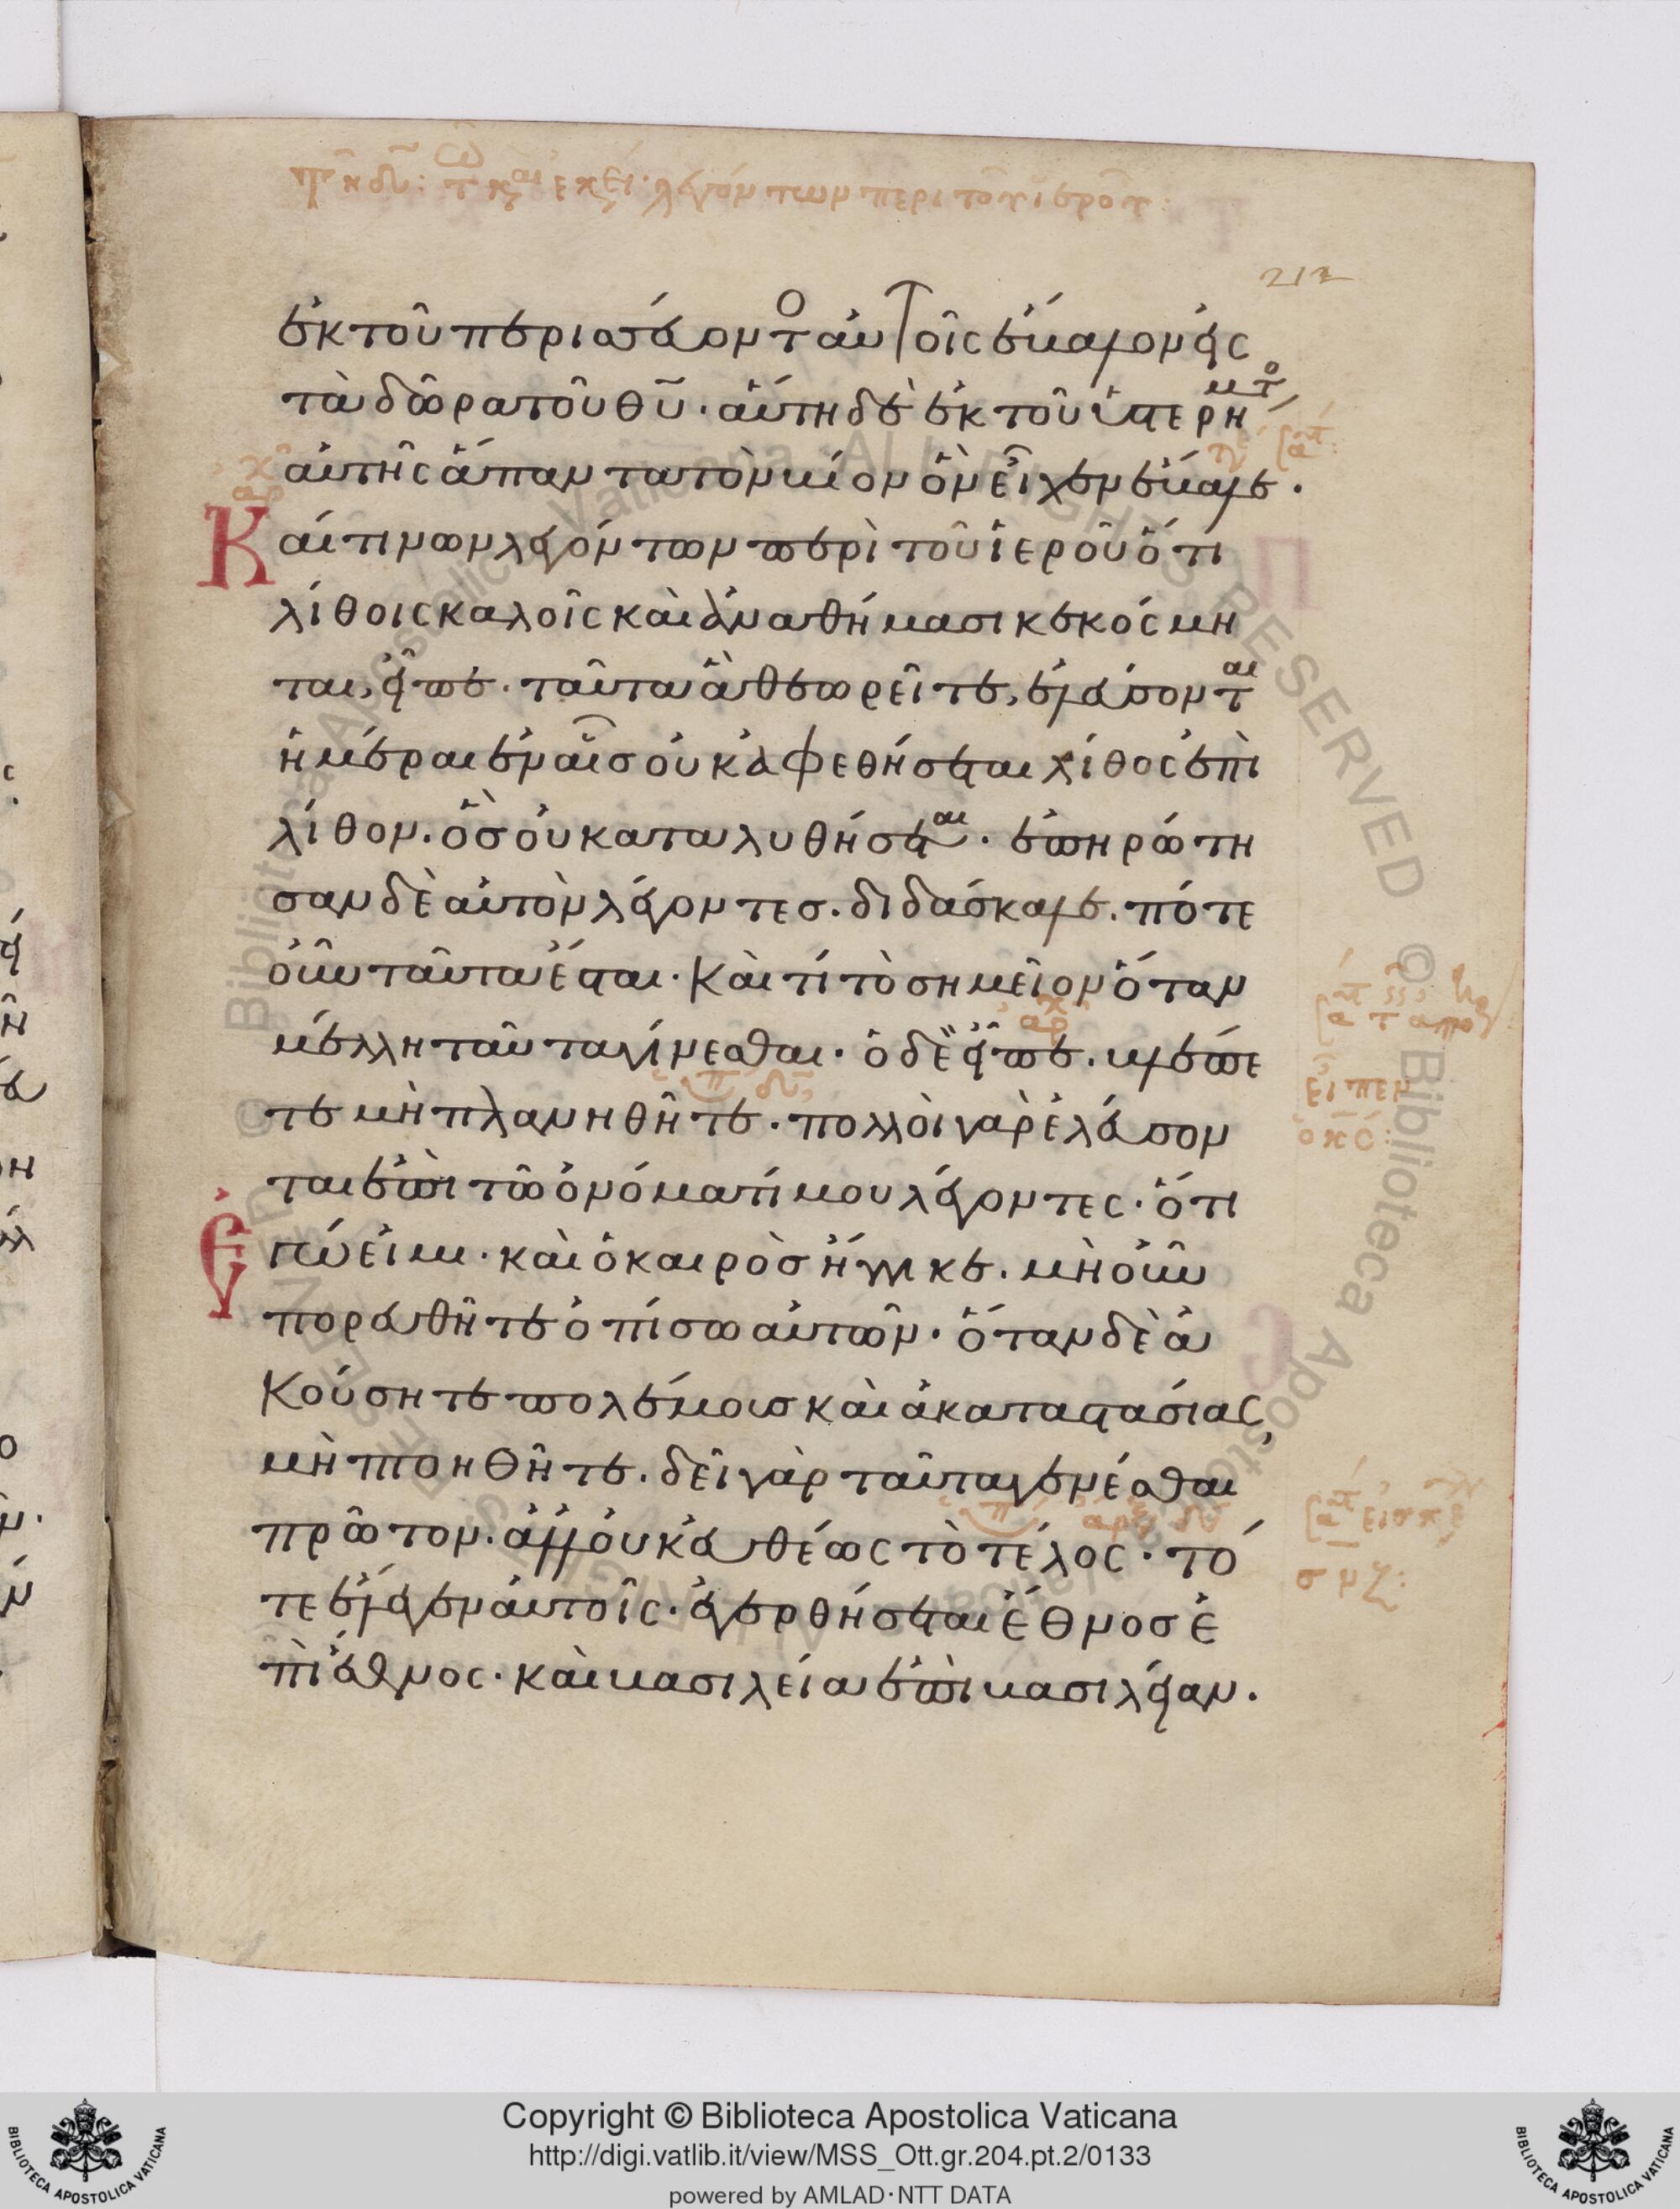 212
ἐκ τοῦ περισσεύοντο αὐτοῖς ἔβαλον εἰς
τὰ δῶρα τοῦ θυ̅· αὕτη δὲ ἐκ τοῦ ὑστερήματο
αὐτῆς ἅπαντα τὸν βίον ὃν εἶχεν ἔβαλε.
Καί τινων λεγόντων περὶ τοῦ ἱεροῦ ὅτι
λίθοις καλοῖς καὶ ἀναθήμασι κεκόσμη
ται, εἶπε· ταῦτα ἃ θεωρεῖτε, ἐλεύσονται
ἡμέραι ἐν αἷς οὐκ ἀφεθήσεται λίθος ἐπὶ
λίθον. ὃς οὐ καταλυθήσεται· ἐπηρώτη
σαν δὲ αὐτὸν λέγοντες. διδάσκαλε. πότε
οὖν ταῦτα ἔσται· καὶ τί τὸ σημεῖον ὅταν
μέλλη ταῦτα γίνεσθαι· ὁ δὲ εἶπε. βλέπε
τε μὴ πλανηθῆτε. πολλοὶ γὰρ ἐλεύσον
ται ἐπὶ τῶ ὀνόματί μου λέγοντες· ὅτι
ἐγώ εἰμι· καὶ ὁ καιρὸς ἤγγικε. μὴ οὖν
πορευθῆτε ὀπίσω αὐτῶν· ὅταν δὲ ἀ
κούσητε πολέμους καὶ ἀκαταστασίας,
μὴ πτοηθῆτε. δεῖ γὰρ ταῦτα γενέσθαι
πρῶτον. ἀλλ' οὐκ εὐθέως τὸ τέλος· τό
τε ἔλεγεν αὐτοῖς· ἐγερθήσεται ἔθνος ἐ
πὶ ἔθνος· καὶ βασιλεία ἐπὶ βασιλείαν.
Copyright © Biblioteca Apostolica Vaticana
http://digi.vatlib.it/view/MSS_Ott.gr.204.pt.2/0133
powered by AMLAD·NTT DATA
BIBLIOTECA APOSTOLICA VATICANA
BIBLIOTECA APOSTOLICA VATICANA